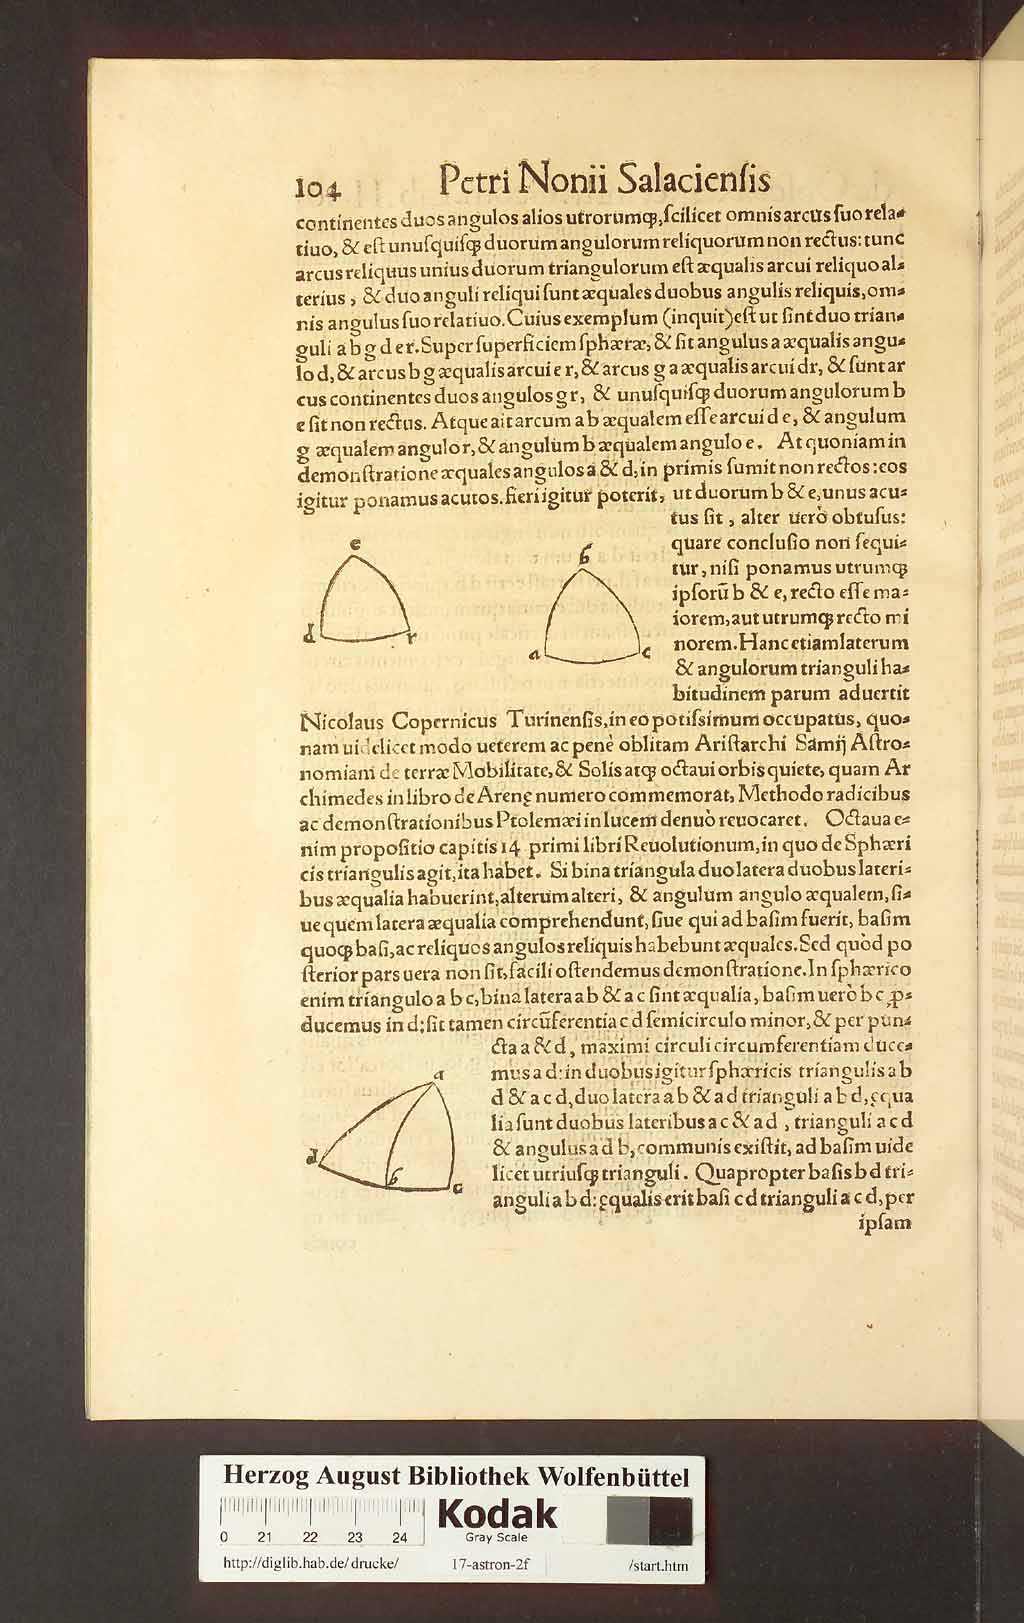 104 Petri Nonii Salaciensis
continentes duos angulos alios utrorumqꝫ, ſcilicet omnis arcus ſuo rela-
tiuo, & eſt unuſquiſqꝫ duorum angulorum reliquorum non rectus: tunc
arcus reliquus unius duorum triangulorum eſt æqualis arcui reliquo al-
terius, & duo anguli reliqui ſunt æquales duobus angulis reliquis, om-
nis angulus ſuo relatiuo. Cuius exemplum (inquit) eſt ut ſint duo trian-
guli a b g d e r. Super ſuperficiem ſphæræ, & ſit angulus a æqualis angu-
lo d, & arcus b g æqualis arcui e r, & arcus g a æqualis arcui dr, & ſunt ar
cus continentes duos angulos g r, & unuſquiſqꝫ duorum angulorum b
e ſit non rectus. Atque ait arcum a b æqualem eſſe arcui d e, & angulum
g æqualem angulo r, & angulum b æqualem angulo e. At quoniam in
demonſtratione æquales angulos a & d, in primis ſumit non rectos: eos
igitur ponamus acutos. fieri igitur poterit, ut duorum b & e, unus acu-
tus ſit, alter uerò obtuſus:
quare concluſio non ſequi-
tur, niſi ponamus utrumqꝫ
ipſorũ b & e, recto eſſe ma-
iorem, aut utrumqꝫ recto mi
norem. Hanc etiam laterum
& angulorum trianguli ha-
bitudinem parum aduertit
e
d r
b
a c
Nicolaus Copernicus Turinenſis, in eo potiſsimum occupatus, quo-
nam uidelicet modo ueterem ac penè oblitam Ariſtarchi Samij Aſtro-
nomiam de terræ Mobilitate, & Solis atqꝫ octaui orbis quiete, quam Ar
chimedes in libro de Arenę numero commemorat, Methodo radicibus
ac demonſtrationibus Ptolemæi in lucem denuò reuocaret. Octaua e-
nim propoſitio capitis 14 primi libri Reuolutionum, in quo de Sphæri
cis triangulis agit, ita habet. Si bina triangula duo latera duobus lateri-
bus æqualia habuerint, alterum alteri, & angulum angulo æqualem, ſi-
ue quem latera æqualia comprehendunt, ſiue qui ad baſim fuerit, baſim
quoqꝫ baſi, ac reliquos angulos reliquis habebunt æquales. Sed quòd po
ſterior pars uera non ſit, facili oſtendemus demonſtratione. In ſphærico
enim triangulo a b c, bina latera a b & a c ſint æqualia, baſim uerò b c, ꝓ-
ducemus in d: ſit tamen circũferentia c d ſemicirculo minor, & per pun-
cta a & d, maximi circuli circumferentiam duce-
mus a d: in duobus igitur ſphæricis triangulis a b
d & a c d, duo latera a b & a d trianguli a b d, ęqua
lia ſunt duobus lateribus a c & a d, trianguli a c d
& angulus a d b, communis exiſtit, ad baſim uide
licet utriuſqꝫ trianguli. Quapropter baſis b d tri-
anguli a b d: ęqualis erit baſi c d trianguli a c d, per
ipſam
a
d b c
Herzog August Bibliothek Wolfenbüttel
Kodak
Gray Scale
0 21 22 23 24
http://diglib.hab.de/drucke/ 17-astron-2f /start.htm